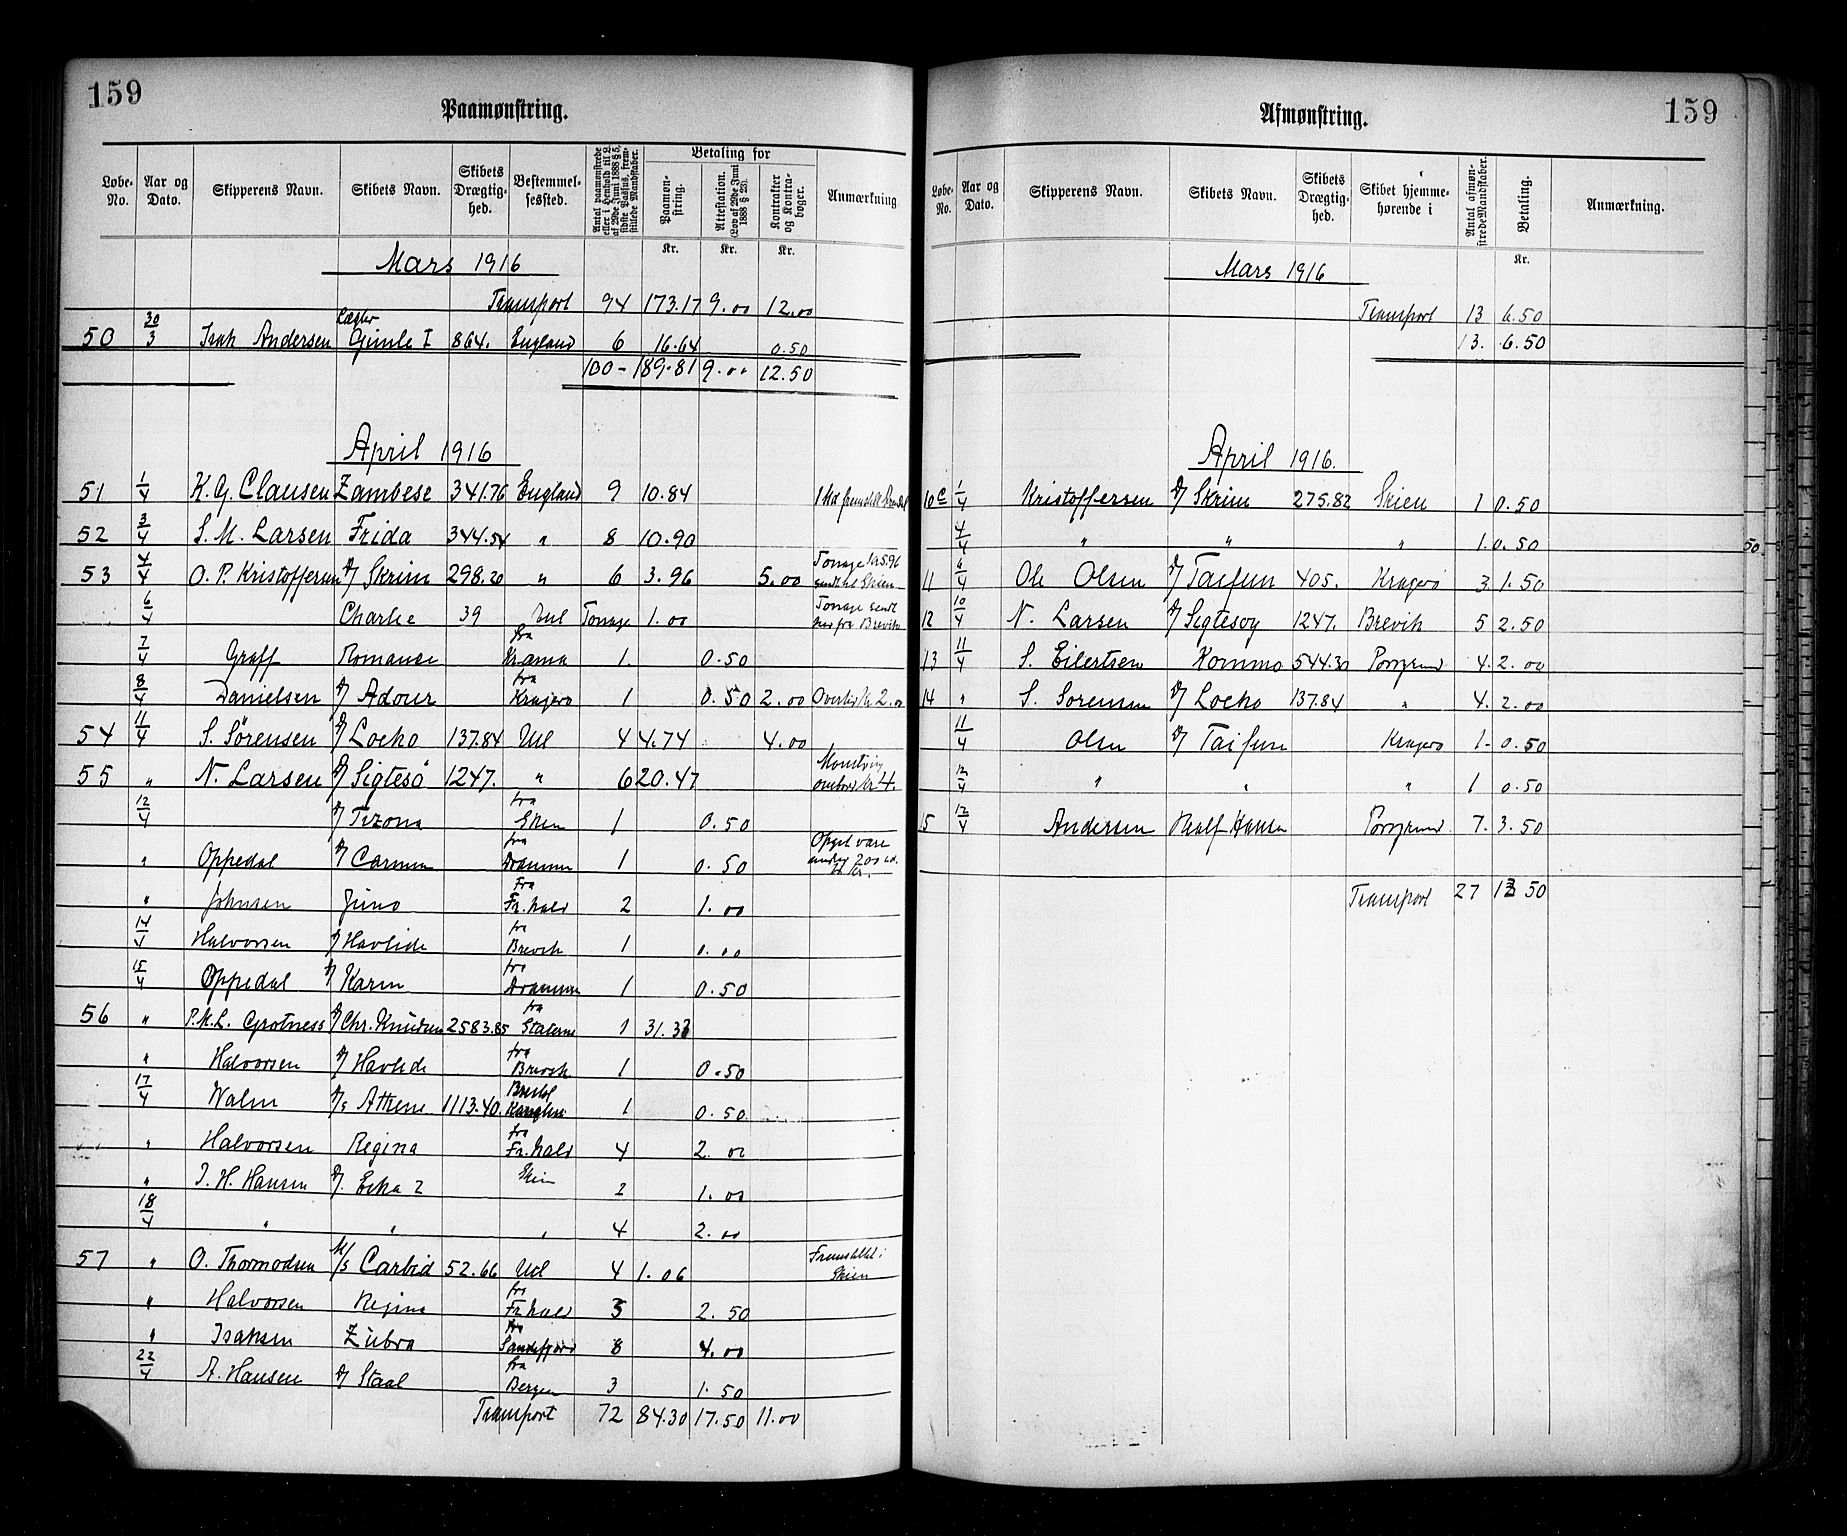 159
Paamønstring.
Løbe-No. | Aar og Dato. | Skipperens Navn. | Skibets Navn. | Skibets Drægtighed. | Bestemmelsessted. | Antal paamønstrede eller i Henhold til L. af 29de Juni 1888 § 5, sidste Passus, fremstillede Mandskaber. | Betaling for | Anmærkning
Paamønstring. | Attestation. (Lov af 29de Juni 1888 § 25). | Kontrakter og Kontrabøger.
Kr. | Kr. | Kr.
Mars 1916
Transport 94 173.17 9.00 12.00
50 30/3 Isak Andersen Lægter Gimle I 864. England 6 16.64 0.50
100 - 189.81 9.00 12.50
April 1916
51 1/4 K. G. Clausen Zambese 341.76 England 9 10.84
52 3/4 S. M. Larsen Frida 344.54 " 8 10.90
53 4/4 O. P. Kristoffersen D/ Skrim 298.20 " 6 3.96 5.00 Tonage kr 5.96 sendt til Skien
6/4 Charlie 39 Ud Tonage 1.00 Tonage sendt fra Brevik
7/4 Graff Romance fra 1. 0.50
8/4 Danielsen D/ Adour fra Kragerø 1 0.50 2.00 Overtid kr 2.00
54 11/4 S. Sörensen D/ Locko 137.84 Ud 4 4.74 4.00
55 " N. Larsen D/ Sigtesø 1247. " 6 20.47 Mønstring ombord kr 4.
12/4 D/ Tizona fra Skien 1 0.50
" Oppedal D/ Carmen fra Drammen 1 0.50
" Johnsen Juno fra Fr.hald 2 1.00
14/4 Halvorsen D/ Havlide fra Brevik 1 0.00
15/4 Oppedal D/ Karin fra Drammen 1 0.50
56 " P.M.L. Grotness D/ Chr. Knudsen 2583.85 fra Staterne 1 31.33
" Halvorsen D/ Havlide fra Brevik 1 0.50
17/4 Walm D/s Athene 1113.40 1 0.50
" Halvorsen Regina fra Fr.hald 4 2.00
" J. H. Hansen D/ Eika 2 Skien 2 1.00
18/4 " " " 4 2.00
57 " O. Thormodsen M/s Carbid 52.66 Ud 4 1.06 Fremstillet i Skien
" Halvorsen Regina fra Fr.hald 5 2.50
" Isaksen Zubra fra Sandefjord 8 4.00
22/4 A. Hansen D/ Staal fra Bergen 3 1.50
Transport 72 84.30 17.50 11.00
159
Afmønstring.
Løbe-No. | Aar og Dato. | Skipperens Navn. | Skibets Navn. | Skibets Drægtighed. | Skibet hjemmehørende i | Antal afmønstrede Mandskaber. | Betaling. | Anmærkning.
Kr.
Mars 1916
Transport 13 6.50
13. 6.50
April 1916.
10 1/4 Kristoffersen D/ Skrim 275.82 Skien 1 0.50
4/4 " " " 1. 0.50
11 6/4 Ole Olsen D/ Taifun 405. Kragerø 3 1.50
12 10/4 N. Larsen D/ Sigtesøy 1247. Brevik 5 2.50
13 11/4 S. Eilertsen Kommo 544.30 Porsgrund 4. 2.00
14 " S. Sorensen D/ Locko 137.84 " 4. 2.00
11/4 Olsen D/ Taifun Kragerø 1 - 0.50
12/4 " " " 1 0.50
15 12/4 Andersen Half Hansen Porsgrund 7. 3.50
Transport 27 13 50
50